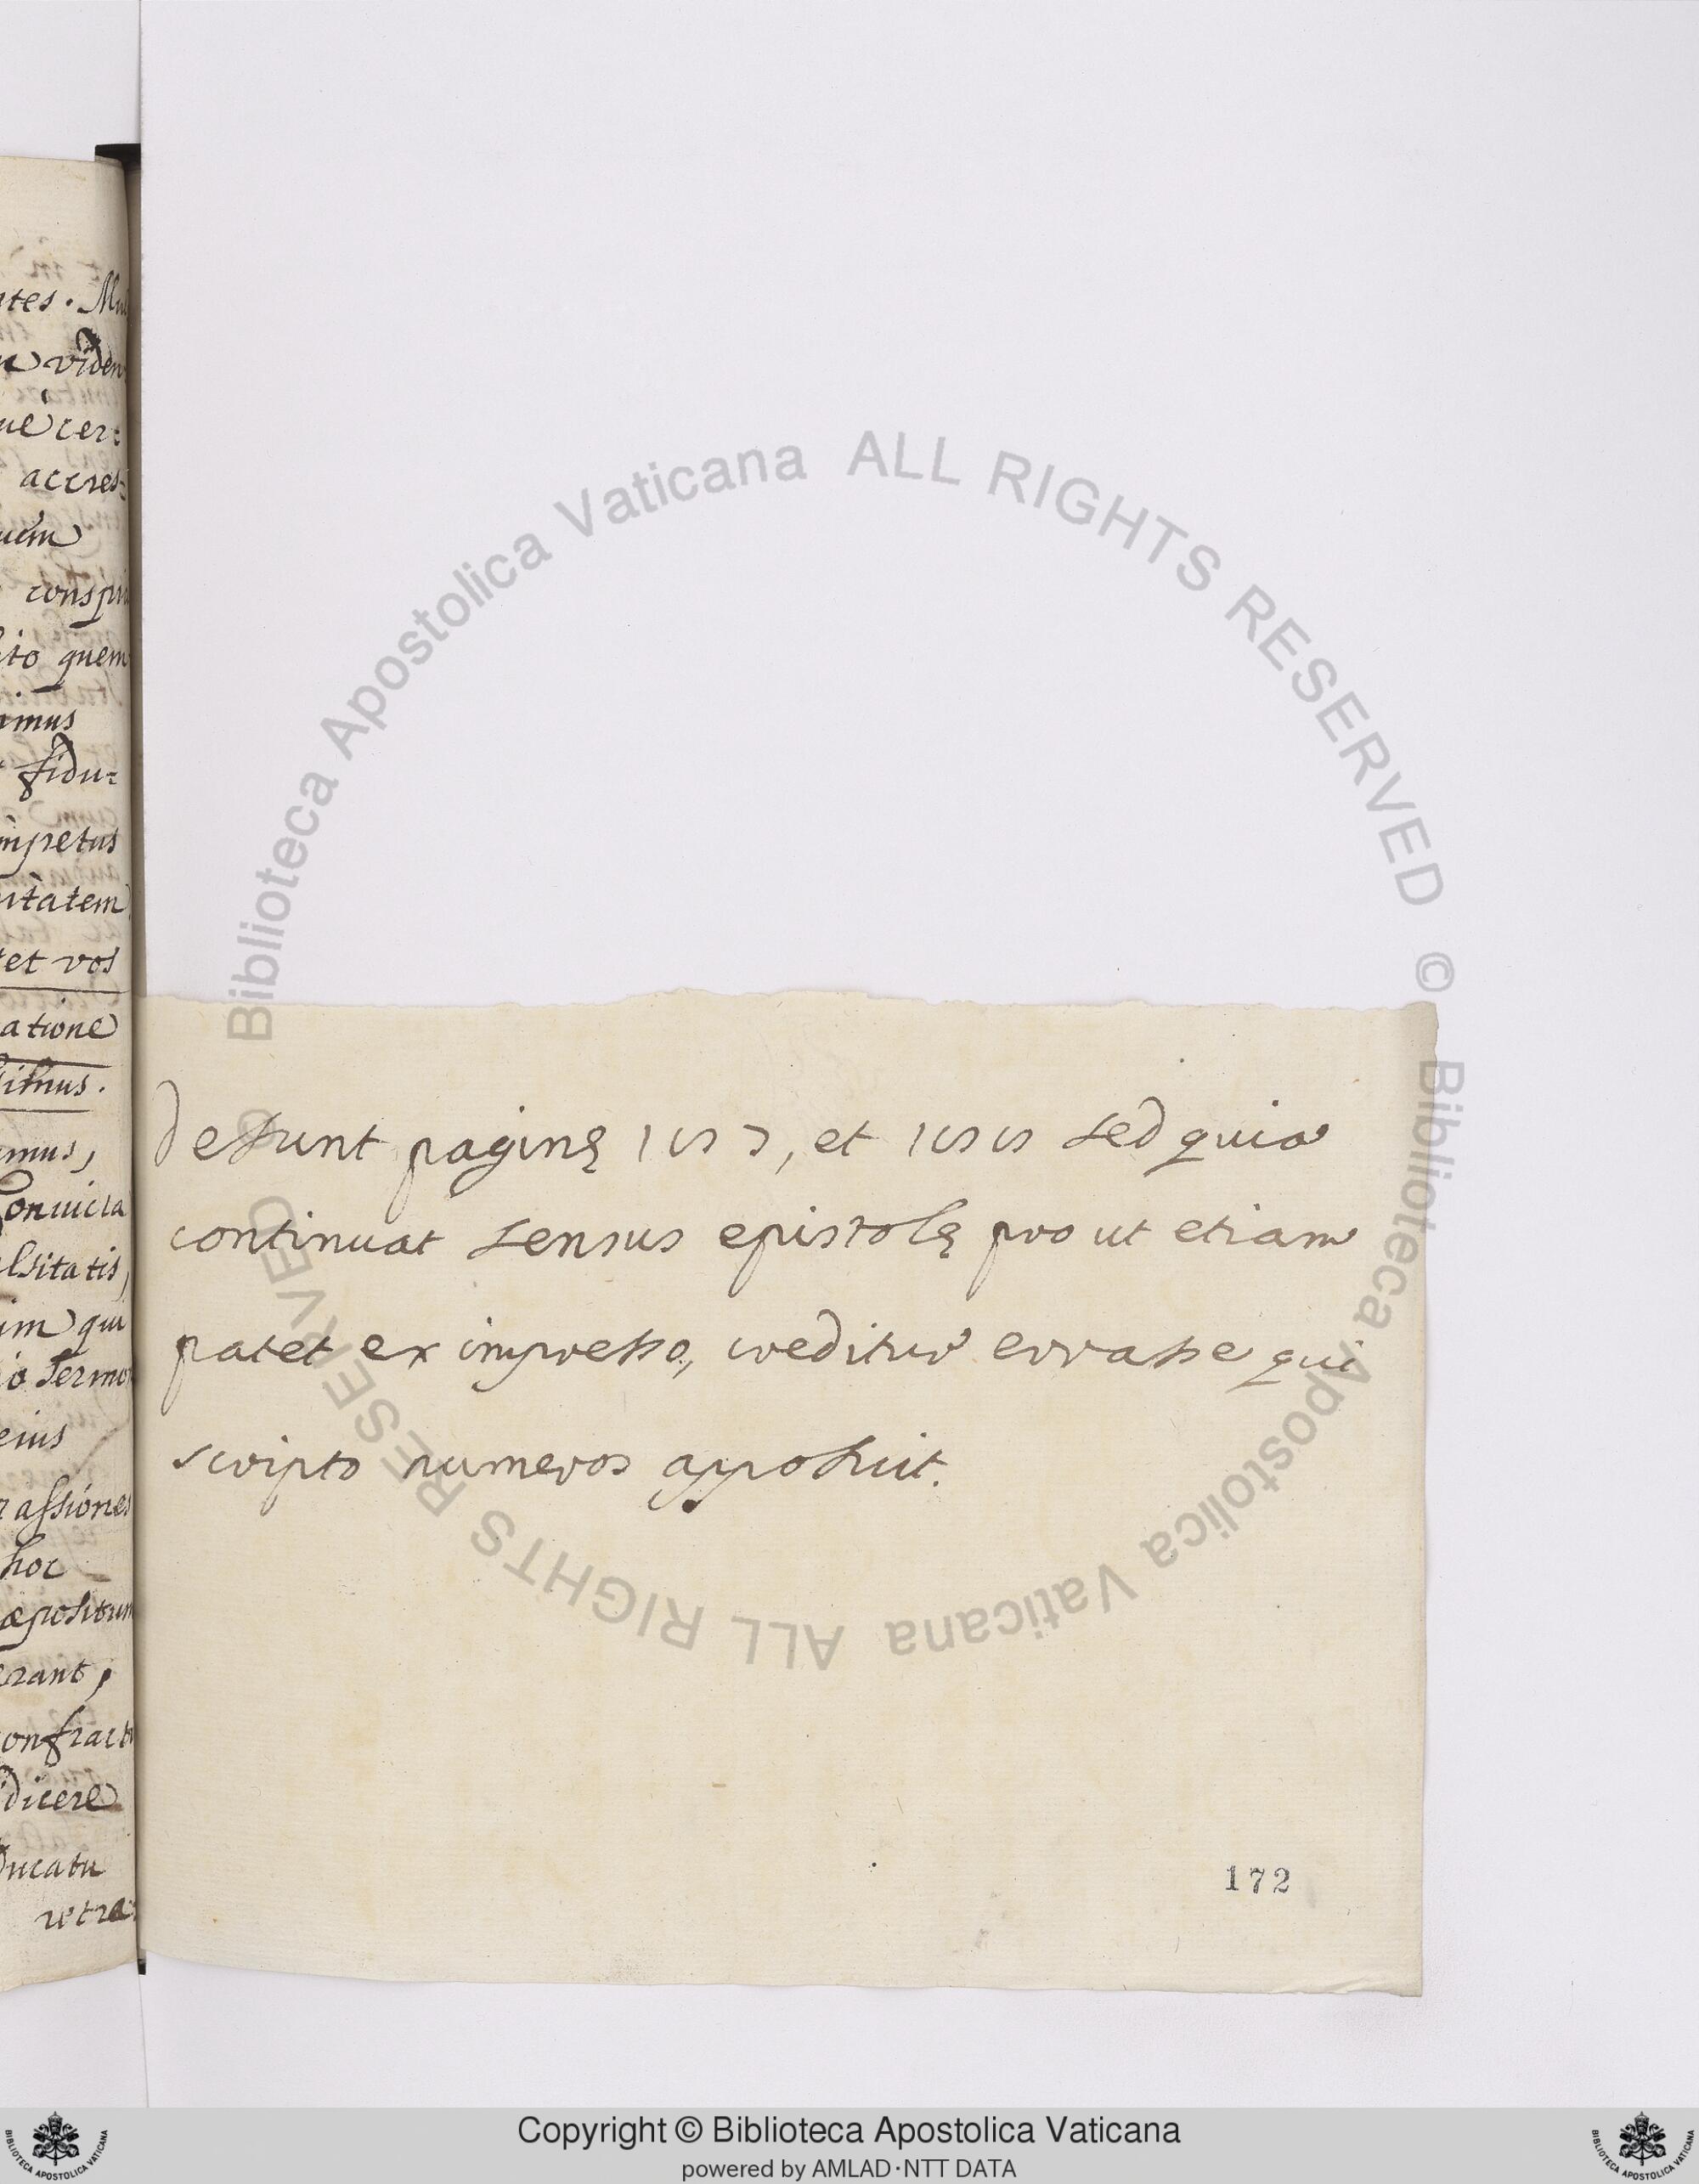 ntes. Mul
vident
cert
accres-
uem
conspi
ito quem
imus
fidu-
impetus
itatem
et vos
atione
simus.
mus,
Conuicta
lsitatis,
im qui
io Sermo
eius
assiones
hoc
æpositum
erant,
onfract
dicere
Ducatu
retra-
desunt paginę et sed quia
continuat sensus epistolę pro ut etiam
patet ex impresso, creditur errasse qui
scripto numeros apposuit.
172
© Biblioteca Apostolica Vaticana ALL RIGHTS RESERVED
© Biblioteca Apostolica Vaticana ALL RIGHTS RESERVED
Copyright © Biblioteca Apostolica Vaticana
powered by AMLAD·NTT DATA
BIBLIOTECA APOSTOLICA VATICANA
BIBLIOTECA APOSTOLICA VATICANA